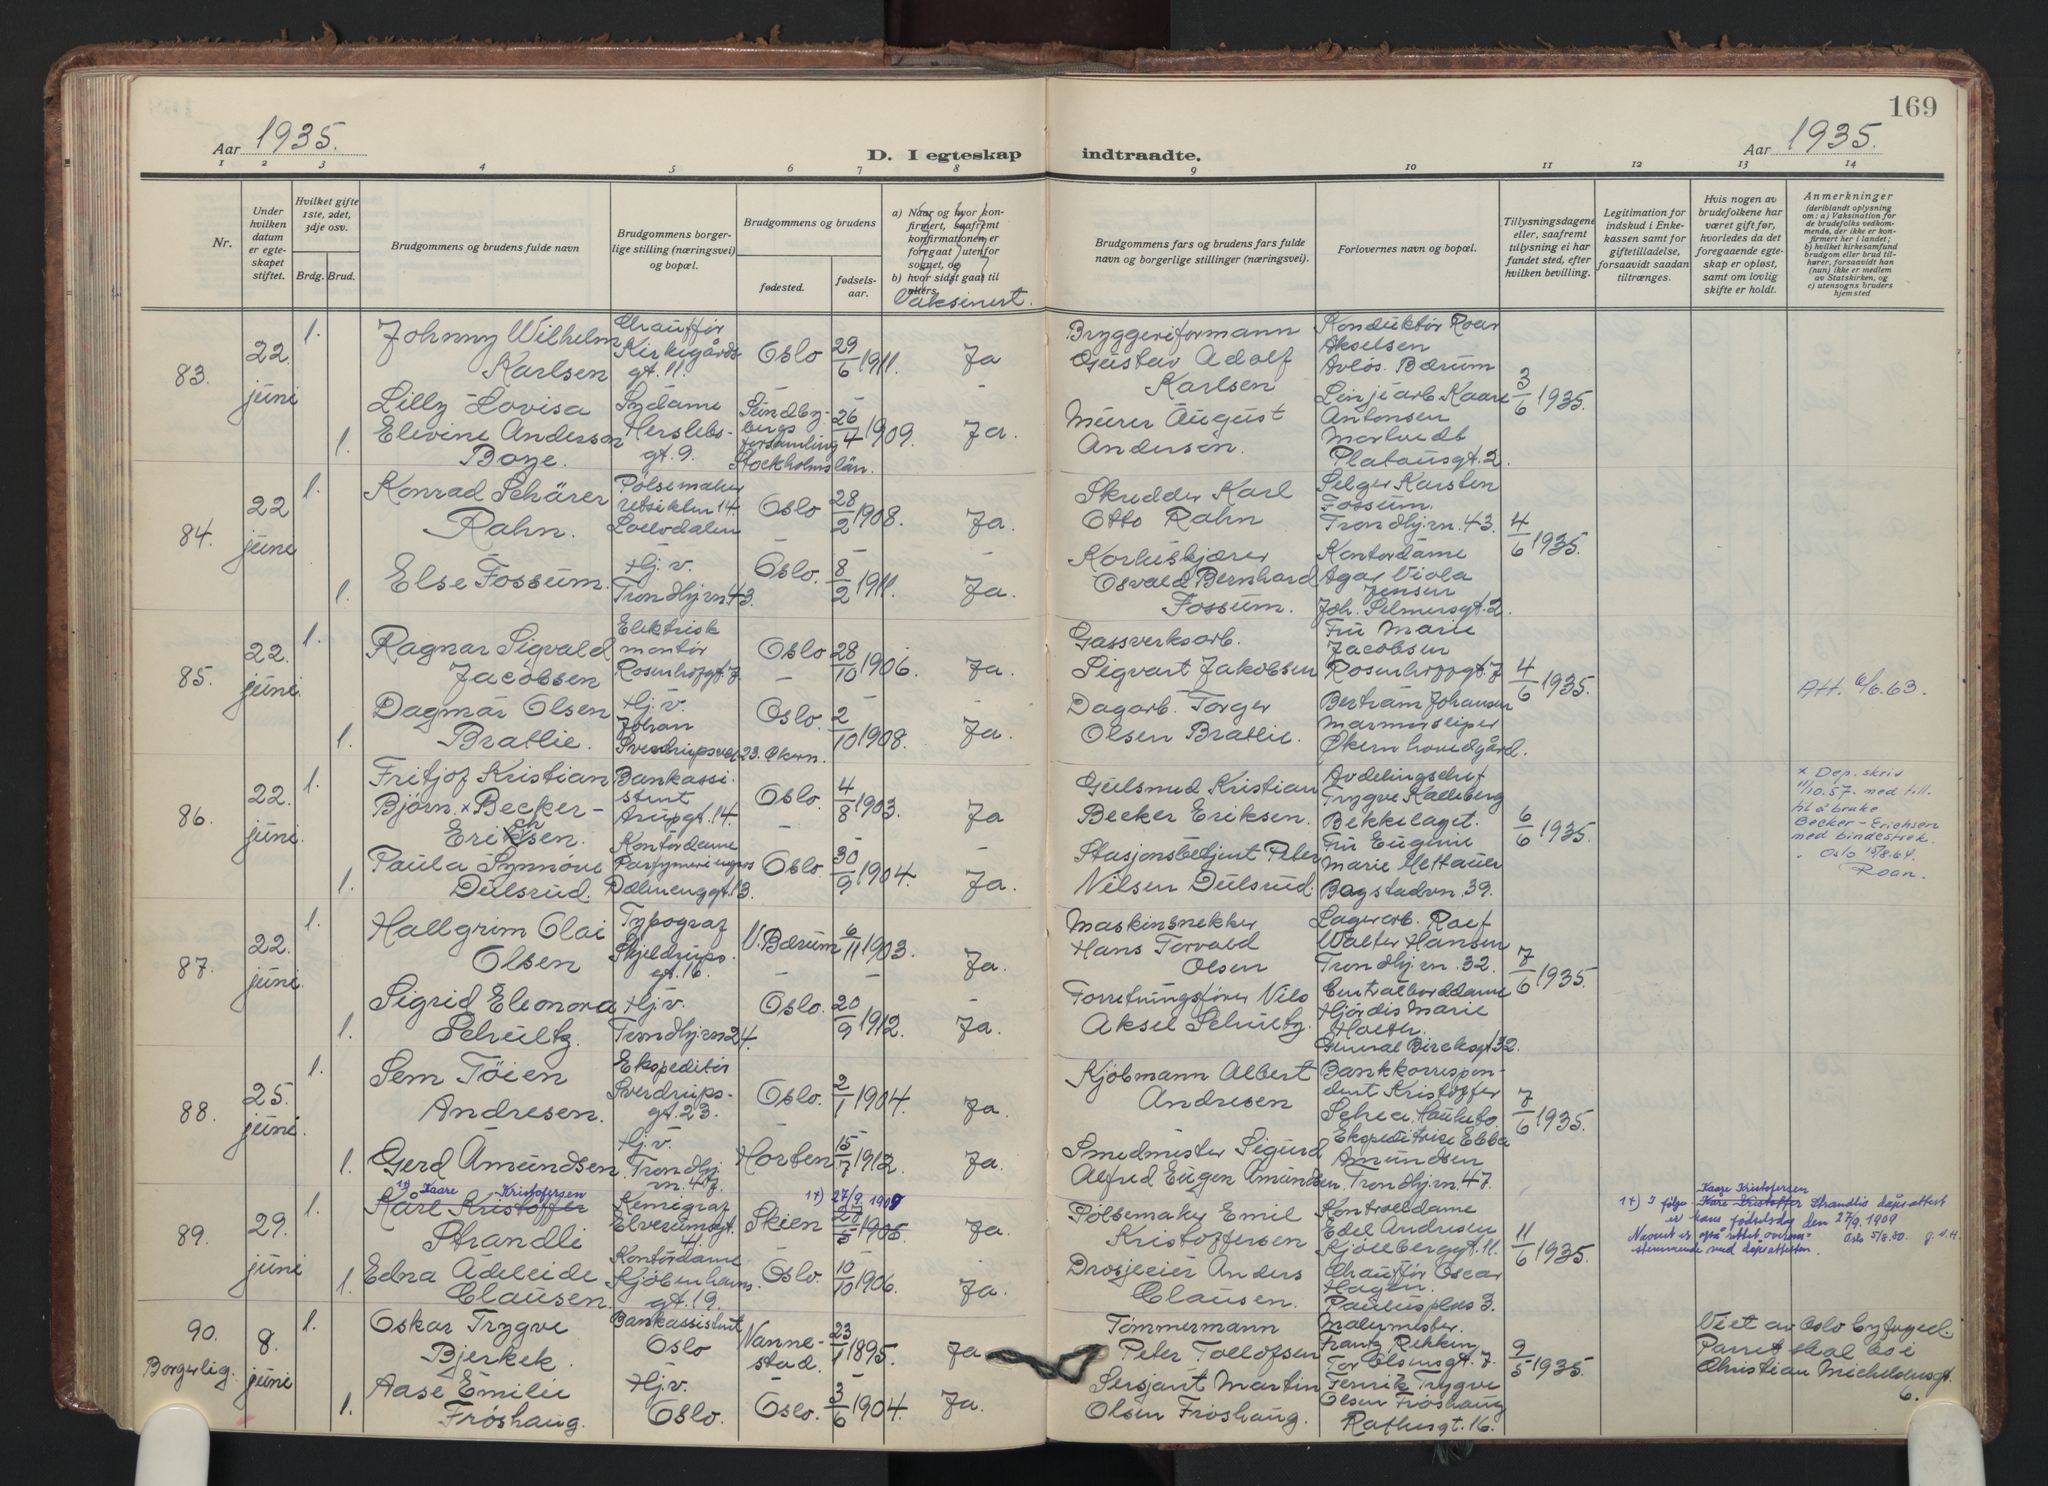 169
Aar 1935.
D. I egteskap indtraadte.
Aar 1935.
1 2 3 4 5 6 7 8 9 10 11 12 13 14
Nr.
Under hvilken datum er egteskapet stiftet.
Hvilket gifte 1ste, 2det, 3dje osv.
Brdg. Brud.
Brudgommens og brudens fulde navn
Brudgommens borgerlige stilling (næringsvei) og bopæl.
Brudgommens og brudens
fødested.
fødselsaar.
a) Naar og hvor konfirmert, saafremt konfirmationen er foregaat utenfor sognet, og
b) hvor sidst gaat til alters.
Vaksinert.
Brudgommens fars og brudens fars fulde navn og borgerlige stillinger (næringsvei).
Forlovernes navn og bopæl.
Tillysningsdagene eller, saafremt tillysning ei har fundet sted, efter hvilken bevilling.
Legitimation for indskud i Enkekassen samt for giftetilladelse, forsaavidt saadan tiltrænges.
Hvis nogen av brudefolkene har været gift før, hvorledes da det foregaaende egteskap er opløst, samt om lovlig skifte er holdt.
Anmerkninger
(deriblandt oplysning om: a) Vaksination for de brudefolks vedkommende, der ikke er konfirmert her i landet; b) hvilket kirkesamfund brudgom eller brud tilhører, forsaavidt han (hun) ikke er medlem av Statskirken, og c) utensogns bruders hjemsted
83. 22. juni
1. Johnny Wilhelm Karlsen
Chauffør Kirkegårdsgt. 11.
Oslo 29/6 1911. Ja
Bryggeriformann Gustav Adolf Karlsen
Konduktør Roar Akselsen Avløs. Bærum
3/6 1935.
1. Lilly Lovisa Elevine Anderson Boye.
Sydame Herslebsgt. 9.
Sundbybergs forsamling Stockholms län.
26/4 1909. Ja.
Murer August Andersen.
Linjearb Kaare Antonsen Platousgt. 2.
84. 22 juni
1. Konrad Schärer Rahn.
Pølsemaker
Oslo 28/2 1908. Ja.
Skredder Karl Otto Rahn
Selger Karsten Fossum. Trondhj.vn. 43.
4/6 1935.
1. Else Fossum.
Hj. v. Trondhj.vn 43.
Oslo. 8/2 1911. Ja.
Korkskjærer Osvald Bernhard Fossum.
Kontordame Agar Viola Jensen Joh. Selmersgt. 2.
85. 22. juni
1. Ragnar Sigvald Jacobsen
Elektrisk montør Rosenhofgt. 7.
Oslo 28/10 1906. Ja.
Gassverksarb. Sigvart Jakobsen
Fru Marie Jacobsen Rosenhoffgt. 7
4/6 1935.
Att. 6/6.63.
1. Dagmar Olsen Bratlie.
Hj. v. Johan Sverdrupsvei 23. Økern.
Oslo. 2/10 1908. Ja.
Dagarb. Torger Olsen Bratlie.
Bertram Johansen Marmorsliper Økern hovedgård.
86. 22. juni
1. Fritjof Kristian Bjørn × Becker-Eriksen. ch
Bankassistent Arupgt. 14.
Oslo. 4/8 1903. Ja
Gulsmed Kristian Becker Eriksen.
Avdelingschef Trygve Kalleberg Bekkelaget.
6/6 1935.
× Dep. skriv 11/10.57. med till. til å bruke Becker-Erichsen med bindestrek.
Oslo 15/8.64. Roan.
1. Paula Synnøve Dulsrud.
Kontordame Parfymeri engros Dælenenggt. 13.
Oslo. 30/9 1904. Ja.
Stasjonsbetjent Peter Nilsen Dulsrud.
Fru Eugenie Marie Hettauer Bogstadvn. 39.
87. 22. juni
1. Hallgrim Olai Olsen
Typograf Skjeldrupsgt. 16.
V. Bærum 6/11 1903. Ja.
Maskinsnekker Hans Torvald Olsen
Lagerarb. Rolf Walter Hansen Trondhj.vn. 32.
7/6 1935.
1. Sigrid Eleonora Schultz.
Hj. v. Trondhj.vn 24.
Oslo. 20/9 1912. Ja.
Forretningsfører Nils Aksel Schultz.
Centralborddame Hjørdis Marie Holth. General Bircksgt 32.
88. 25. juni
1. Sem Töien Andresen.
Ekspeditør Sverdrupsgt. 23.
Oslo. 2/1 1904. Ja.
Kjøbmann Albert Andresen
Bankkorrespondent Kristoffer Hauketo
7/6 1935.
1. Gerd Amundsen.
Hj. v. Trondhj. vn. 47.
Horten 15/7 1912. Ja.
Smedmester Sigurd Alfred Eugen Amundsen.
Ekspeditrise Ebba Amundsen Trondhj.vn. 47.
89. 29. juni
1. 1+) Kaare Kristofersen
Kåre Kristoffer Strandli
Kemigraf Elverumsgt. 4.
Skien 1+) 27/9. 1909 1905 Ja.
Pølsemaker Emil Kristoffersen
Kontrolldame Edel Andresen Kjølberggt. 11.
11/6 1935.
1+) I følge Kaare Kristofersen Kåre Kristoffer Strandlis dåpsattest er hans fødselsdag den 27/9. 1909
Navnet er også rettet overensstemmende med dåpsattesten. Oslo 5/8.50. J. N. H.
1. Edna Adeleide Clausen.
Kontordame Kjøbenhavnsgt. 19.
Oslo. 10/10 1906. Ja.
Drosjeeier Anders Clausen.
Chauffør Oscar Hagen. Paulusplass 3.
90. Borgerlig. 8. juni
1. Oskar Trygve Bjerkek.
Bankassistent Oslo
Nannestad. 23/1 1895. Ja
Tømmermann Peter Tollofsen
Malermester. Frantz Rekken Tor Olsensgt. 7.
9/5 1935.
Viet av Oslo byfoged. Parret skal bo i Christian Michelsensgt. 6.
1. Aase Emilie Frøshaug.
Hj. v. Oslo.
Oslo. 3/6 1904. Ja.
Sersjant Martin Olsen Frøshaug.
Henrik Trygve Olsen Frøshaug Rathusgt. 16.